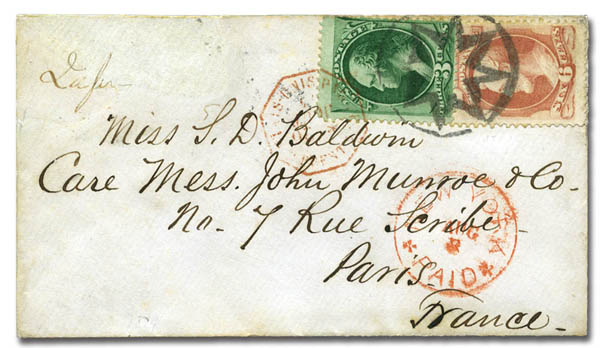 Miss S. D. Baldwin
Care Mess. John Munroe & Co-
No- 7 Rue Scribe-
Paris-
France-
NEW YORK
AUG
PAID